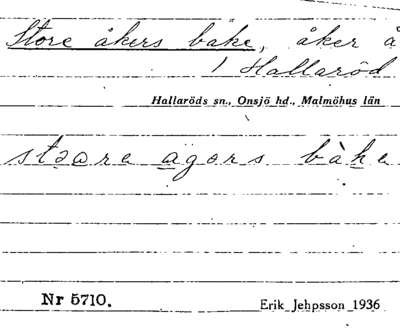 Store åkers bake, åker å
1 Hallaröd
Hallaröds sn., Onsjö hd., Malmöhus län
stəɷre ągors bàke
Nr 5710.
Erik Jeppsson 1936